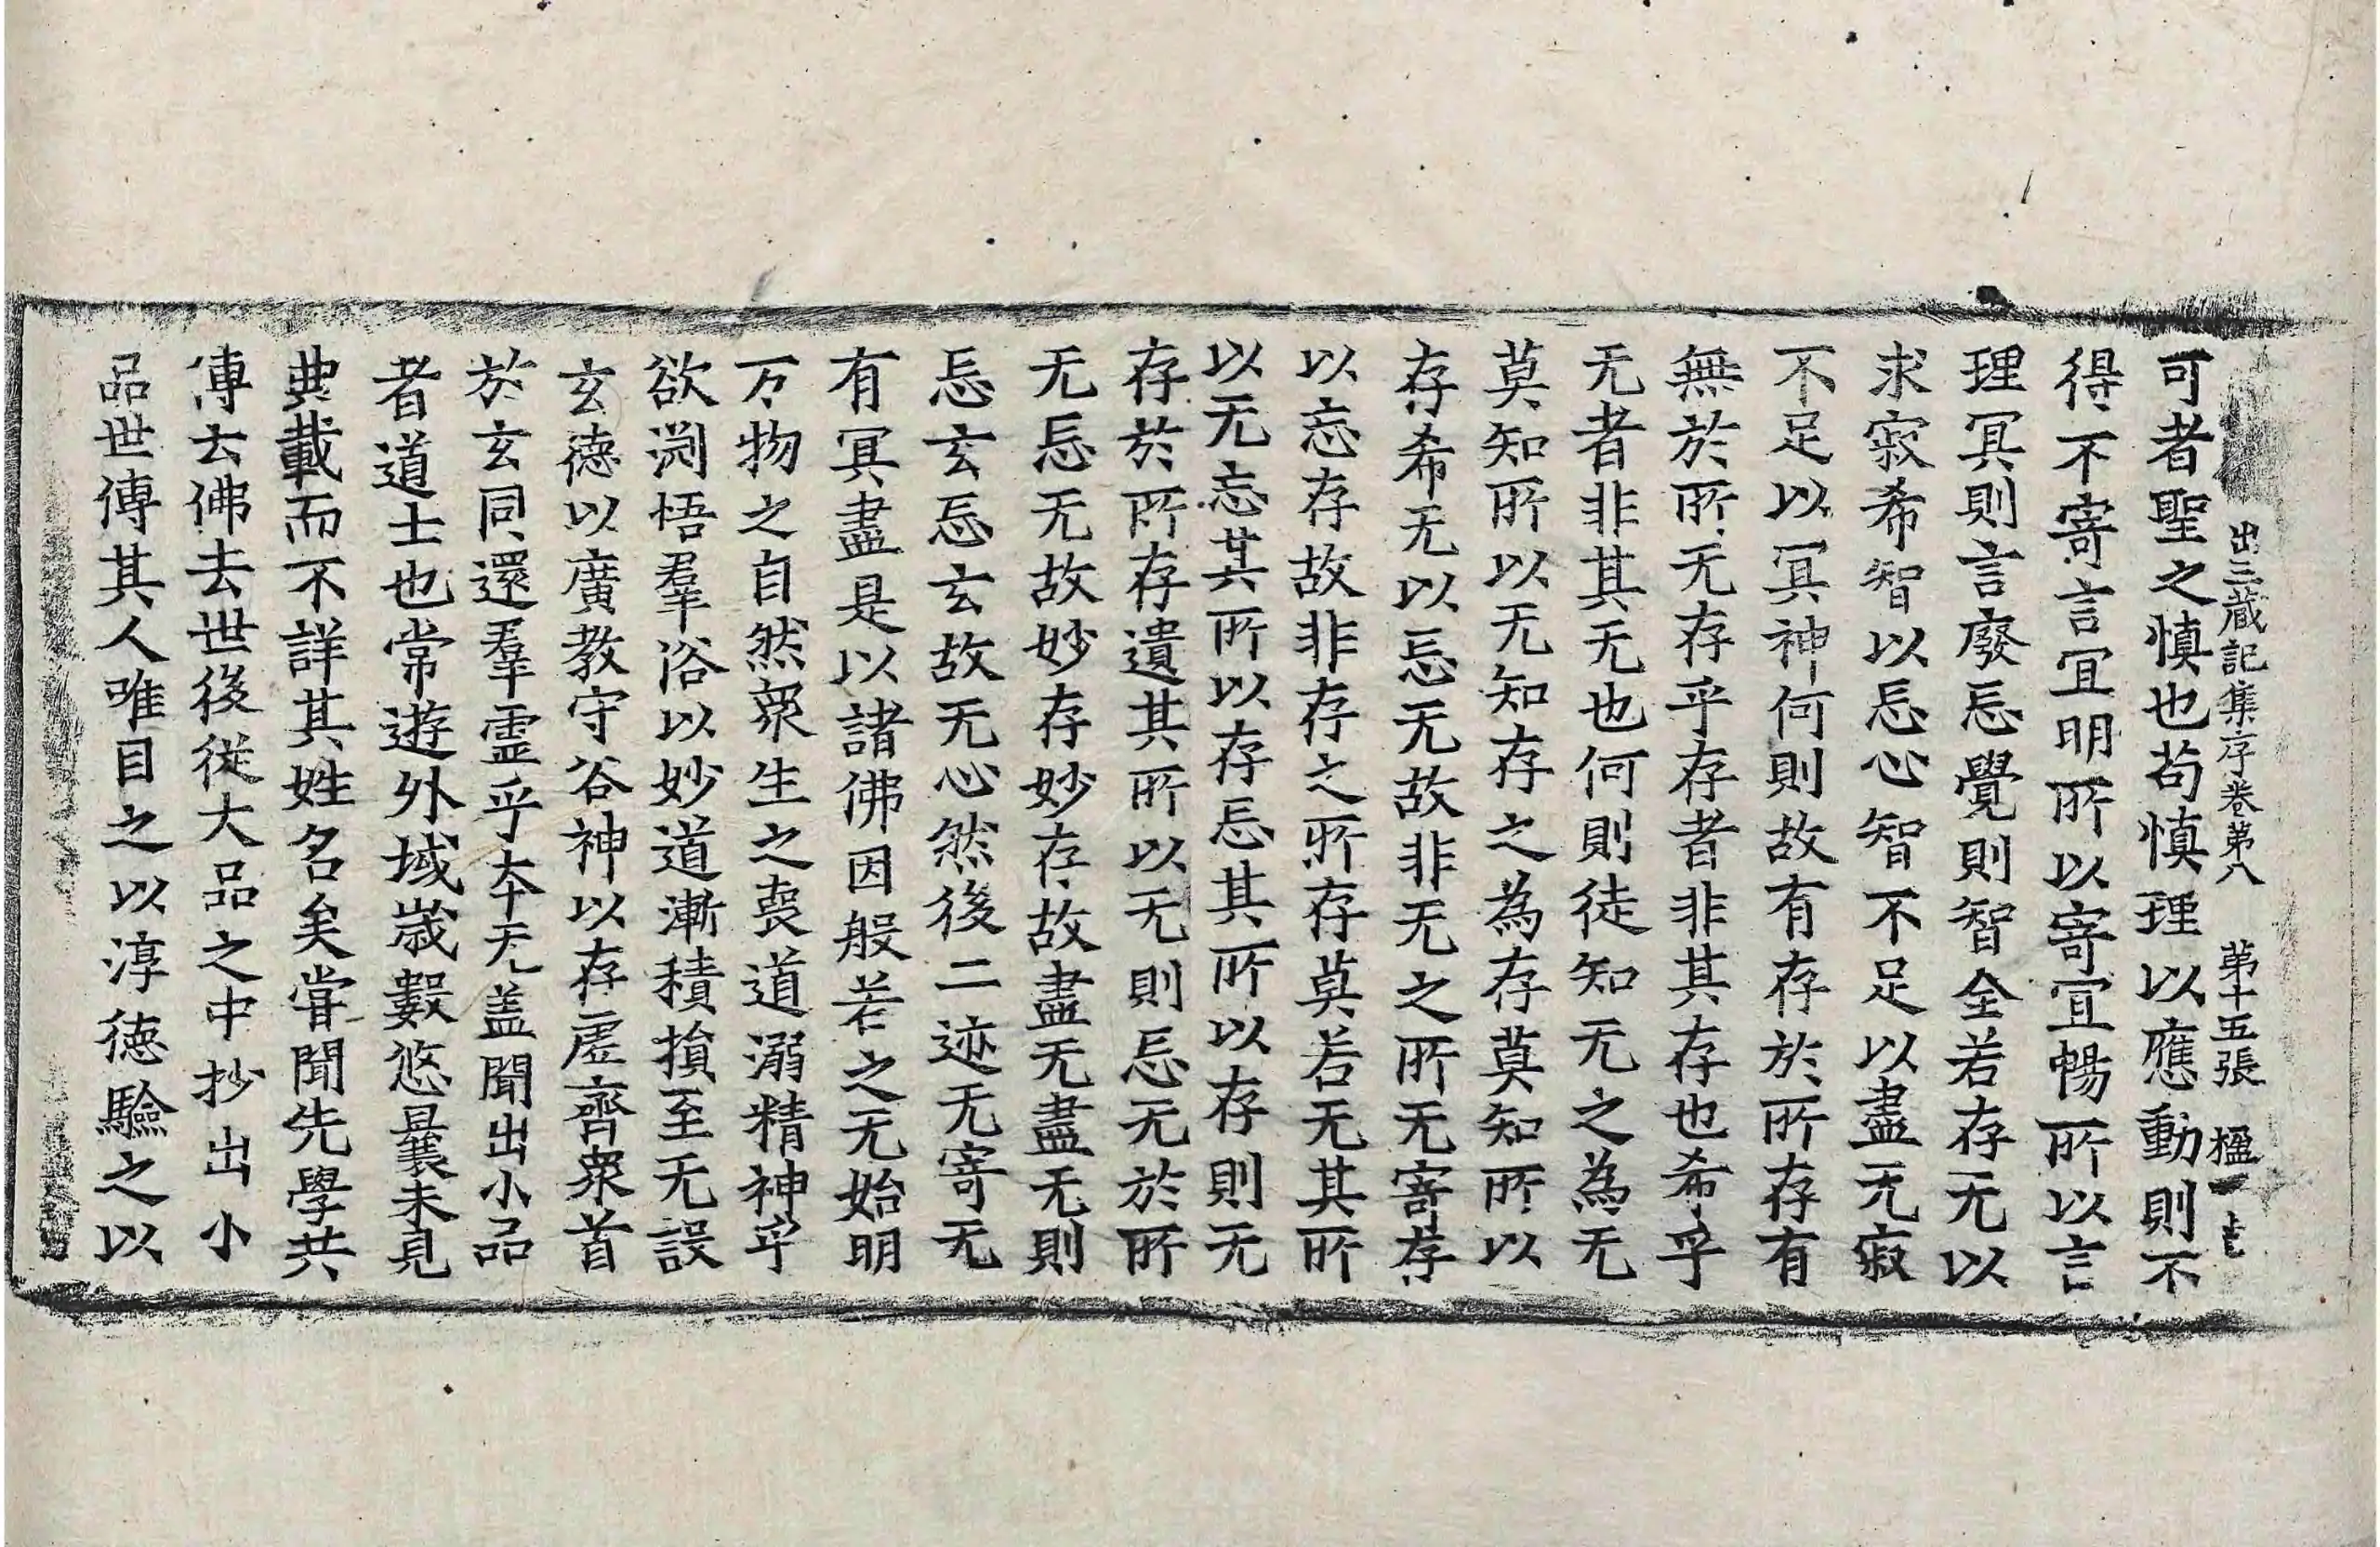 出三藏記集序卷第八　第十五張　楹
可者聖之慎也苟慎理以應動則不
得不寄言冝明所以寄宜暢所以言
理冥則言廢忘覺則智全若存无以
求寂希智以忘心智不足以盡无寂
不足以冥神何則故有存於所存有
無於所无存乎存者非其存也希乎
无者非其无也何則徒知无之為无
莫知所以无知存之為存莫知所以
存希无以忘无故非无之所无寄存
以忘存故非存之所存莫若无其所
以无忘其所以存忘其所以存則无
存於所存遺其所以无則忘无於所
无忘无故妙存妙存故盡无盡无則
忘玄忘玄故无心然後二迹无寄无
有冥盡是以諸佛因般若之无始明
万物之自然衆生之喪道溺精神乎
欲渕悟羣俗以妙道漸積損至无設
玄德以廣教守谷神以存虛齊衆首
於玄同還羣靈乎夲无盖聞出小品
者道士也常遊外域歲數悠曩未見
典載而不詳其姓名矣甞聞先學共
傳云佛去世後從大品之中抄出小
品世傳其人唯目之以淳德驗之以